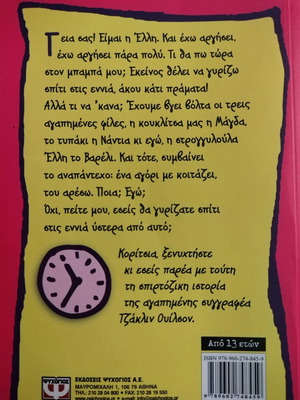 Γεια σας! Είμαι η Έλλη. Και έχω αργήσει,
έχω αργήσει πάρα πολύ. Τι θα πω τώρα
στον μπαμπά μου; Εκείνος θέλει να γυρίζω
σπίτι στις εννιά, άκου κάτι πράματα!
Αλλά τι να 'κανα; Έχουμε βγει βόλτα οι τρεις
αγαπημένες φίλες, η κουκλίτσα μας η Μάγδα,
το τυπάκι η Νάντια κι εγώ, η στρογγυλούλα
Έλλη το Βαρέλι. Και τότε, συμβαίνει
το αναπάντεχο: ένα αγόρι με κοιτάζει,
του αρέσω. Ποια; Εγώ;
Όχι, πείτε μου, εσείς θα γυρίζατε σπίτι
στις εννιά ύστερα από αυτό;
Κορίτσια, ξενυχτήστε
κι εσείς παρέα με τούτη
τη σπιρτόζικη ιστορία
της αγαπημένης συγγραφέα
Τζάκλιν Ουίλσον.
Από 13 ετών
ISBN 978-960-274-845-9
ΨΥΧΟΓΙΟΣ
ΕΚΔΟΣΕΙΣ ΨΥΧΟΓΙΟΣ Α.Ε.
ΜΑΥΡΟΜΙΧΑΛΗ 1, 106 79 ΑΘΗΝΑ
9 789602 748459